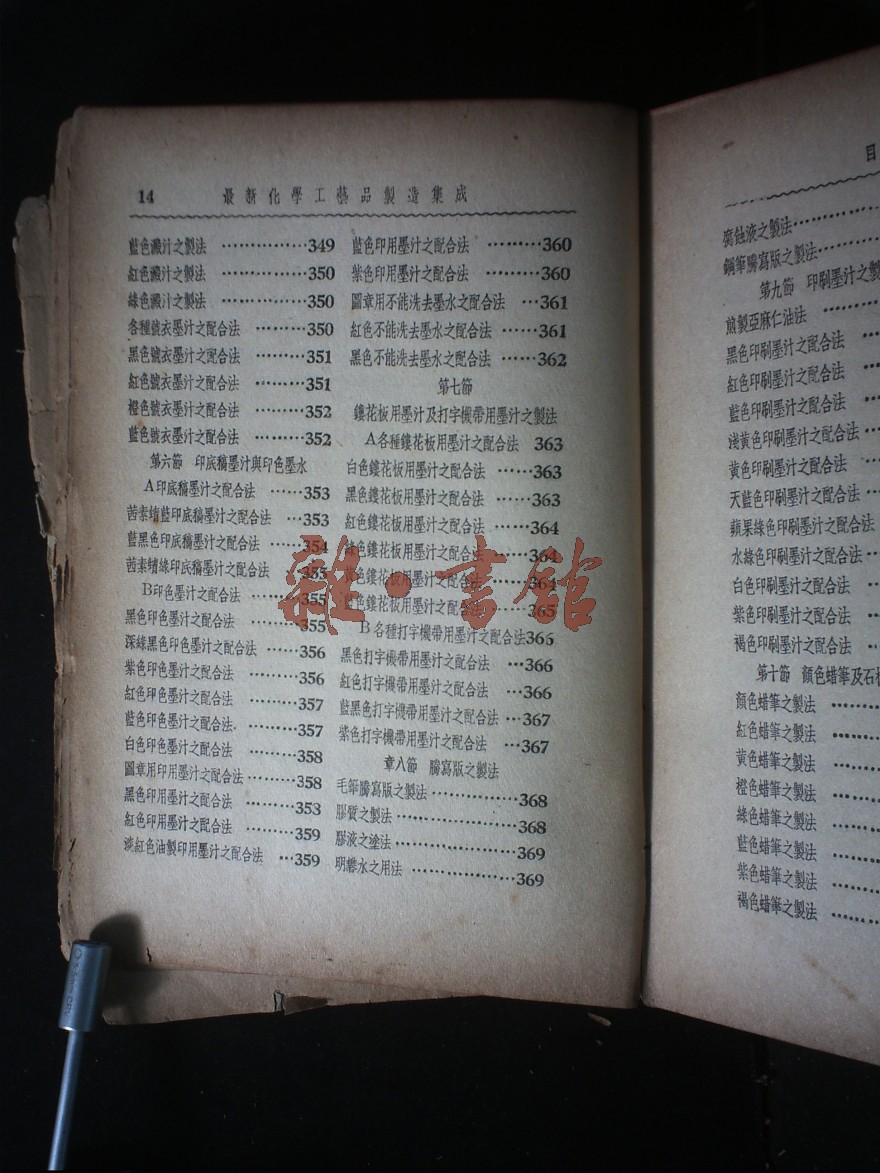 14 最新化學工藝品製造集成
藍色澱汁之製法 ················349
紅色澱汁之製法 ············350
綠色澱汁之製法 ············350
各種號衣墨汁之配合法 ········350
黑色號衣墨汁之配合法 ········351
紅色號衣墨汁之配合法 ········351
橙色號衣墨汁之配合法 ········352
藍色號衣墨汁之配合法 ········352
第六節 印底稿墨汁與印色墨水
A印底稿墨汁之配合法 ······353
苦素蜻藍印底稿墨汁之配合法 ···353
藍黑色印底稿墨汁之配合法 ····354
苦素蜻綠印底稿墨汁之配合法 ····355
B印色墨汁之配合法 ·······355
黑色印色墨汁之配合法 ········355
深綠黑色印色墨汁之配合法 ·····356
紫色印色墨汁之配合法 ········356
紅色印色墨汁之配合法 ········357
藍色印色墨汁之配合法 ········357
白色印色墨汁之配合法 ········358
圖章用印用墨汁之配合法 ·······358
黑色印用墨汁之配合法 ········353
紅色印用墨汁之配合法 ········359
淡紅色油製印用墨汁之配合法 ···359
藍色印用墨汁之配合法 ········360
紫色印用墨汁之配合法 ········360
圖章用不能洗去墨水之配合法 ···361
紅色不能洗去墨水之配合法 ·····361
黑色不能洗去墨水之配合法 ·····362
第七節
鏤花板用墨汁及打字機帶用墨汁之製法
A各種鏤花板用墨汁之配合法 363
白色鏤花板用墨汁之配合法 ·····363
黑色鏤花板用墨汁之配合法 ·····363
紅色鏤花板用墨汁之配合法 ·····364
綠色鏤花板用墨汁之配合法 ·····364
色鏤花板用墨汁之配合法 ·····364
色鏤花板用墨汁之配合法 ·····365
B各種打字機帶用墨汁之配合法366
黑色打字機帶用墨汁之配合法 ···366
紅色打字機帶用墨汁之配合法 ···366
藍黑色打字機帶用墨汁之配合法 ···367
紫色打字機帶用墨汁之配合法 ···367
章八節 謄寫版之製法
毛筆謄寫版之製法 ···········368
膠質之製法 ···············368
膠液之塗法 ···············369
明礬水之用法 ·············369
雜·書館
目
腐蝕液之製法··········
鋼筆謄寫版之製法·······
第九節 印刷墨汁之製
煎製亞麻仁油法 ·······
黑色印刷墨汁之配合法 ····
紅色印刷墨汁之配合法 ····
藍色印刷墨汁之配合法 ····
淺黃色印刷墨汁之配合法 ··
黃色印刷墨汁之配合法 ····
天藍色印刷墨汁之配合法 ··
蘋果綠色印刷墨汁之配合法
水綠色印刷墨汁之配合法 ··
白色印刷墨汁之配合法 ···
紫色印刷墨汁之配合法 ···
褐色印刷墨汁之配合法 ···
第十節 顏色蜡筆及石
顏色蜡筆之製法 ········
紅色蜡筆之製法 ········
黃色蜡筆之製法 ········
橙色蜡筆之製法 ········
綠色蜡筆之製法 ········
藍色蜡筆之製法 ········
紫色蜡筆之製法 ········
褐色蜡筆之製法 ········